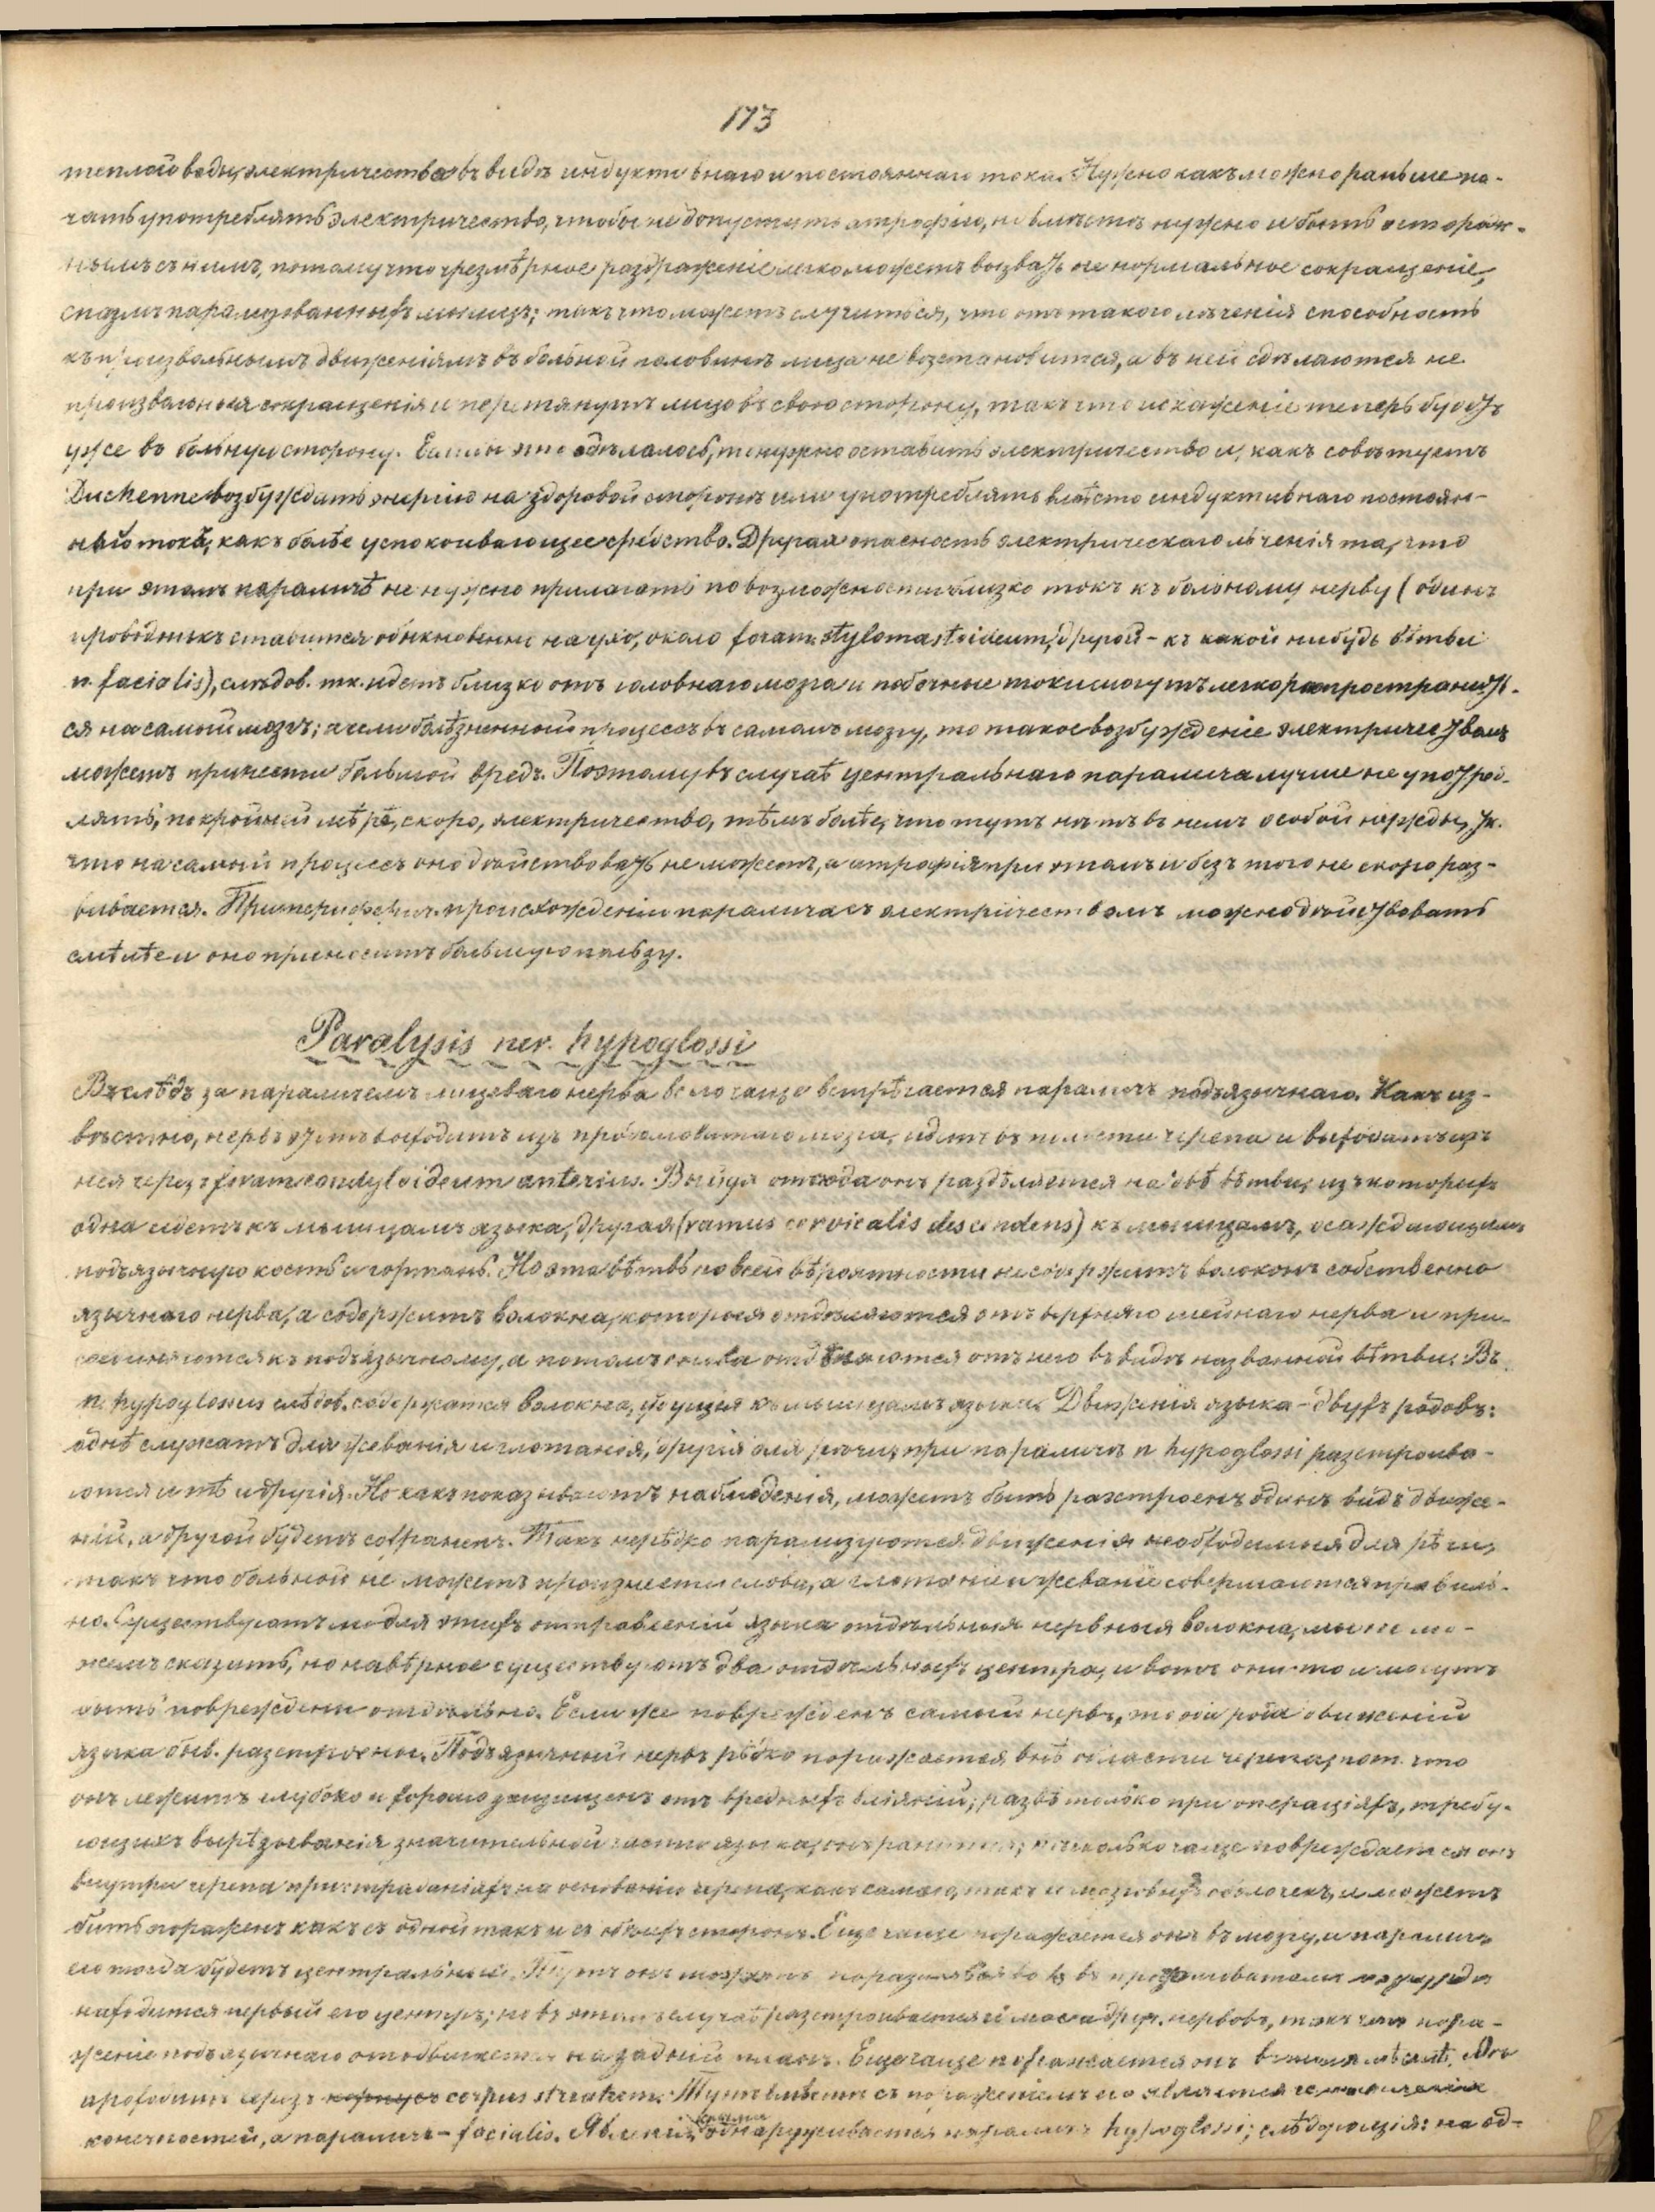 173
теплой воды, электричества въ видѣ индуктивнаго и постояннаго тока. Нужно какъ можно раньше на-
чать употреблять электричество, чтобы не допустить атрофію, но вмѣстѣ нужно и быть осторож-
нымъ съ нимъ, потому что чрезмѣрное раздраженіе легко можетъ вызвать не нормальное сокращеніе,
спазмъ парализованныхъ мышцъ; такъ что можетъ случиться, что отъ такого лѣченія способность
къ произвольнымъ движеніямъ въ больной половинѣ лица не возстановится, а въ ней сдѣлаются не
произвольныя сокращенія и перетянутъ лицо въ свою сторону, такъ что искаженіе теперь будетъ
уже въ больную сторону. Если это сдѣлалось, то нужно оставить электричество и, какъ совѣтуетъ
Duchenne возбуждать энергію на здоровой сторонѣ или употреблять вмѣсто индуктивнаго постоян-
ный токъ, какъ болѣе успокоивающее средство. Другая опасность электрическаго лѣченія та, что
при этомъ параличѣ не нужно прилагать по возможности близко токъ къ больному нерву (одинъ
проводникъ ставится обыкновенно на ухо, около foram. stylomastoideum, другой - къ какой нибудь вѣтви
n. facialis), слѣдов. тк. идетъ близко отъ головнаго мозга и побочные токи могутъ легко распространить-
ся на самый мозгъ; а если болѣзненный процессъ въ самомъ мозгу, то такое возбужденіе электричествомъ
можетъ принести большой вредъ. Поэтому въ случаѣ центральнаго паралича лучше не употреб-
лять, по крайней мѣрѣ, скоро, электричество, тѣмъ болѣе, что тутъ нѣтъ въ немъ особой нужды, тк.
что на самый процессъ оно дѣйствовать не можетъ, а атрофія при этомъ и безъ того не скоро раз-
вивается. При перифери. происхожденіи паралича съ электричествомъ можно дѣйствовать
смѣлѣе и оно приноситъ большую пользу.
Paralysis ner. hypoglossi
Въ слѣдъ за параличемъ лицеваго нерва всего чаще встрѣчается параличъ подъязычнаго. Какъ из-
вѣстно, нервъ этотъ выходитъ изъ продолговатаго мозга, идетъ въ полости черепа и выходитъ изъ
нея черезъ foram. condyloideum anterius. Выйдя оттуда онъ раздѣляется на двѣ вѣтви, изъ которыхъ
одна идетъ къ мышцамъ языка, другая (ramus cervicalis descendens) къ мышцамъ, осаждающимъ
подъязычную кость и гортань. Но эта вѣтвь по всей вѣроятности не содержитъ волоконъ собственно
язычнаго нерва, а содержитъ волокна, которыя отдѣляются отъ верхняго шейнаго нерва и при-
соединяются къ подъязычному, а потомъ снова отдѣляются отъ него въ видѣ названной вѣтви. Въ
n. hypoglossus слѣдов. содержатся волокна, идущія къ мышцамъ языка. Движенія языка - двухъ родовъ:
однѣ служатъ для жеванія и глотанія, другія для рѣчи, при параличѣ n hypoglossi разстроива-
ются и тѣ и другія. Но какъ показываютъ наблюденія, можетъ быть разстроенъ одинъ видъ движе-
ній, а другой будетъ сохраненъ. Такъ нерѣдко парализуются движенія необходимыя для рѣчи,
такъ что больной не можетъ произнести слова, а глотаніе и жеваніе совершаются правиль-
но. Существуютъ ли для этихъ отправленій языка отдѣльныя нервныя волокна, мы не мо-
жемъ сказать, но навѣрное существуютъ два отдѣльныхъ центра, и вотъ они-то и могутъ
быть повреждены отдѣльно. Если же поврежденъ самый нервъ, то оба рода движеній
языка быв. разстроены. Подъязычный нервъ рѣдко поражается внѣ области черепа, пот. что
онъ лежитъ глубоко и хорошо защищенъ отъ вредныхъ вліяній; развѣ только при операціяхъ, требу-
ющихъ вырѣзыванія значительной части языка, онъ ранится; нѣсколько чаще повреждается онъ
внутри черепа при страданіяхъ на основаніи черепа, какъ самаго, такъ и мозговыхъ оболочекъ, и можетъ
быть пораженъ какъ съ одной такъ и съ обѣихъ сторонъ. Еще чаще поражается онъ въ мозгу, и параличъ
его тогда будетъ центральный. Тутъ онъ можетъ поражаться въ продолговатомъ мозгу, гдѣ
находится первый его центръ; но въ этомъ случаѣ разстроивается и масса друг. нервовъ, такъ что пора-
женіе подъязычнаго отодвигается на задній планъ. Еще чаще поражается онъ въ мѣстѣ, гдѣ
проходитъ черезъ corpus striatum. Тутъ вмѣстѣ съ пораженіемъ его является
конечностей, а параличъ - facialis. обнаруживается параличъ hypoglossi, слѣдующія: на од-